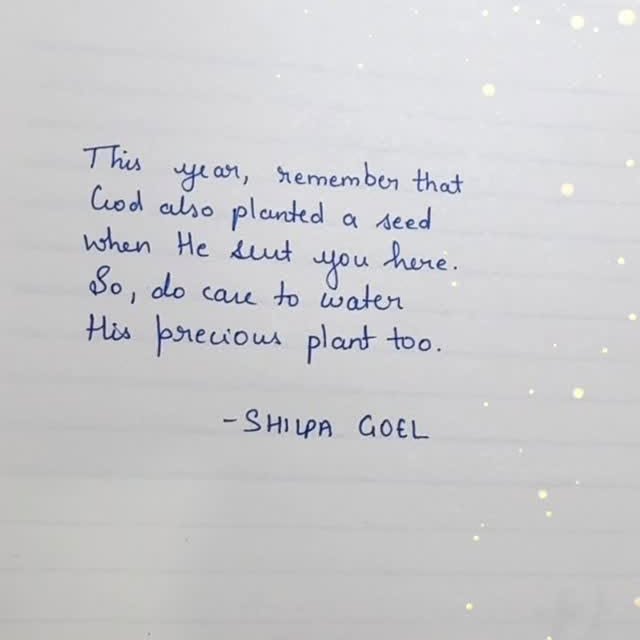 This year, remember that
God also planted a seed
when He sent you here.
So, do care to water
His precious plant too.
-SHILPA GOEL